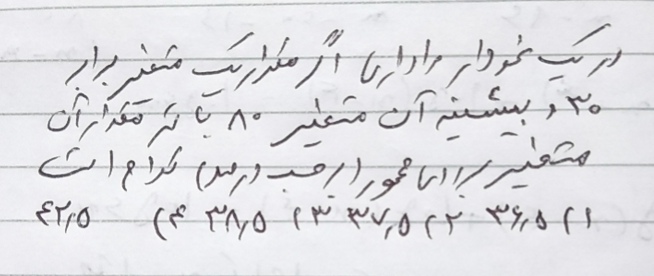 در یک نمودار راداری اگر مقدار یک متغیر برابر
۳۰ و بیشینه آن متغیر ۸۰ باشد مقدار آن
متغیر برای محور (برحسب درصد) کدام است
۱) ۳۶٫۵ ۲) ۳۷٫۵ ۳) ۳۸٫۵ ۴) ۴۲٫۵